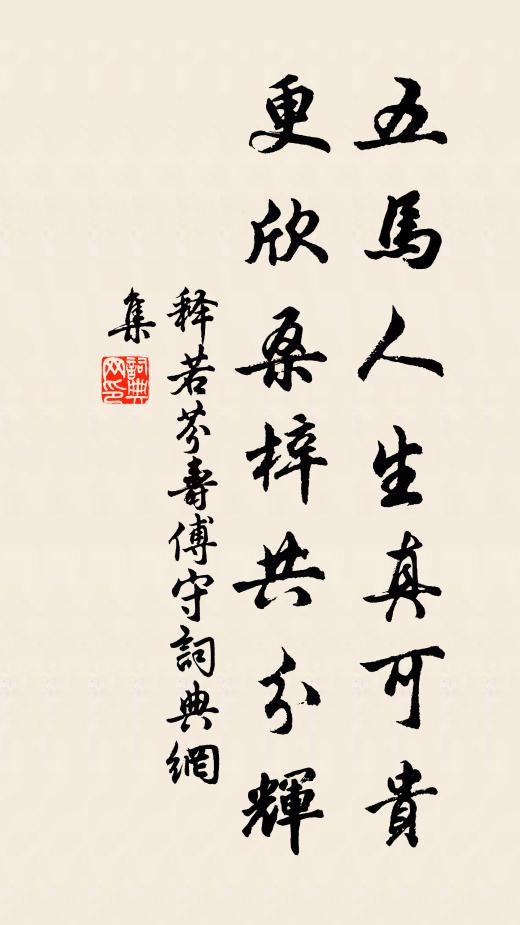 五馬人生真可貴
更欣桑梓共分輝
释若芬壽傅守詞典網
集
詞典
网印